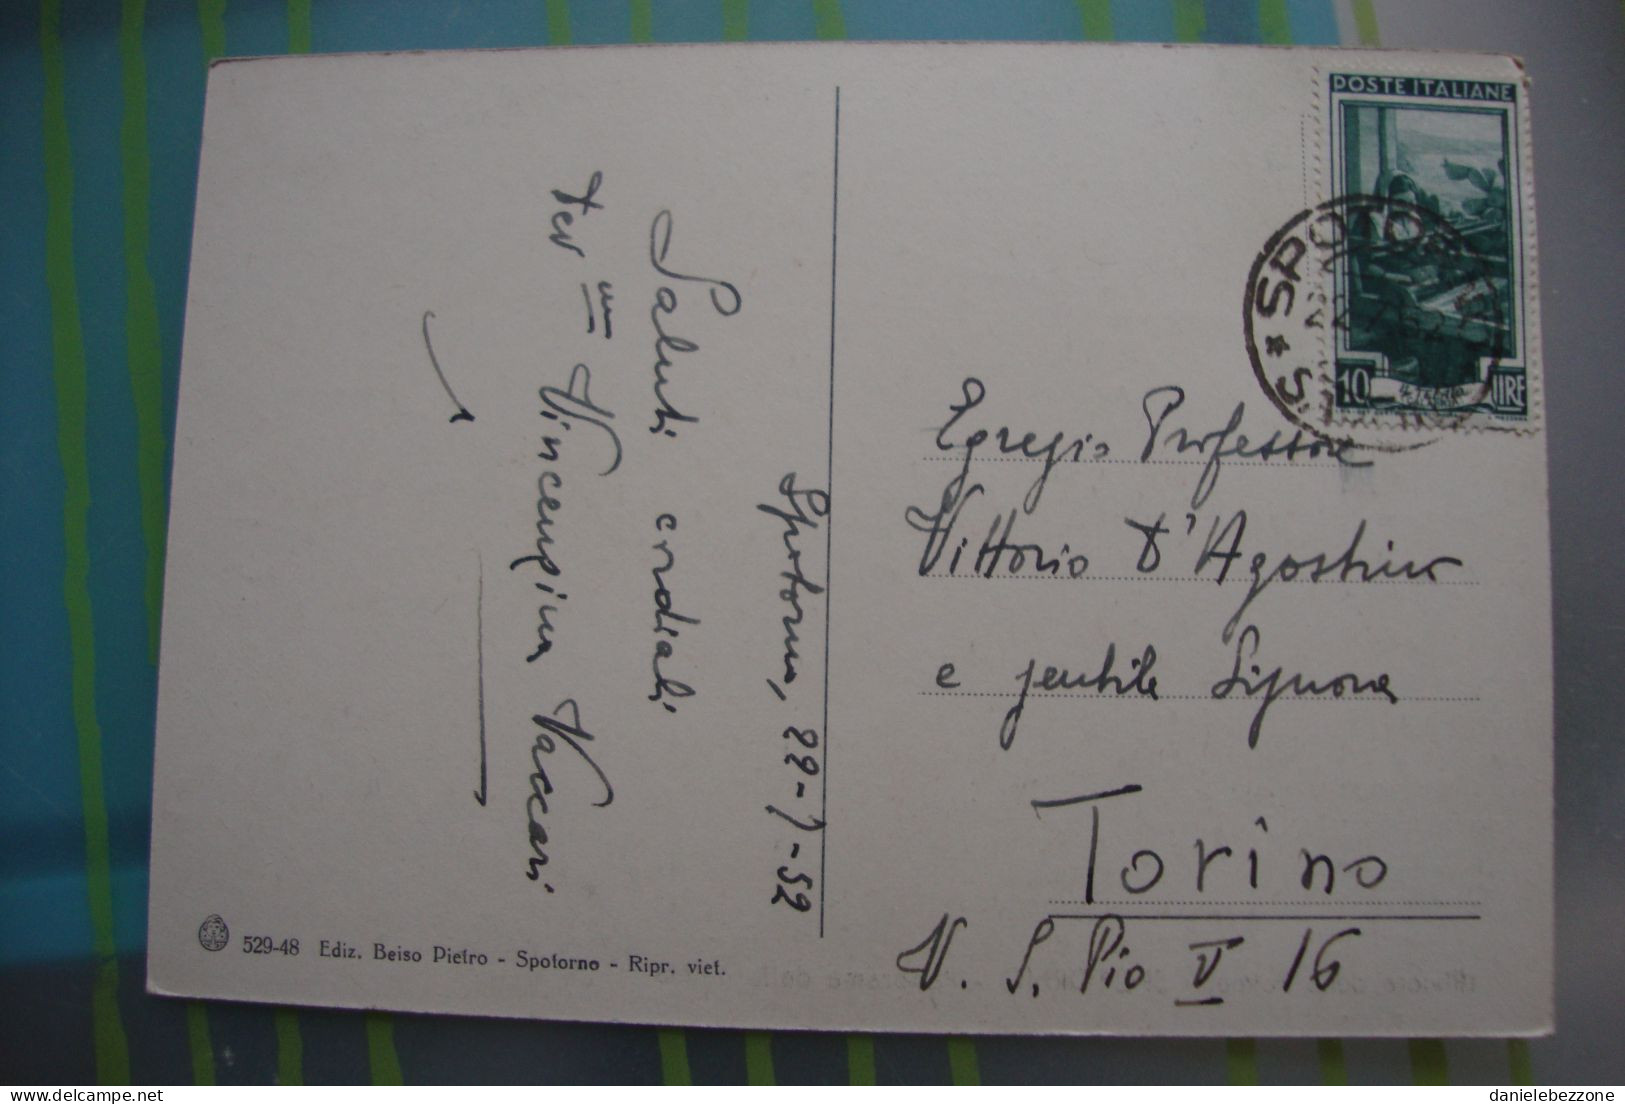 Spotorno, 22-7-52
Saluti cordiali
Vincenzina Vaccari
529-48 Ediz. Beiso Pietro - Spotorno - Ripr. viet.
POSTE ITALIANE
10 LIRE
SPOTORNO
22.7.52
Egregio Professore
Vittorio D'Agostino
e gentile Signora
Torino
V. S. Pio V 16
delcampe.net
danielebezzone